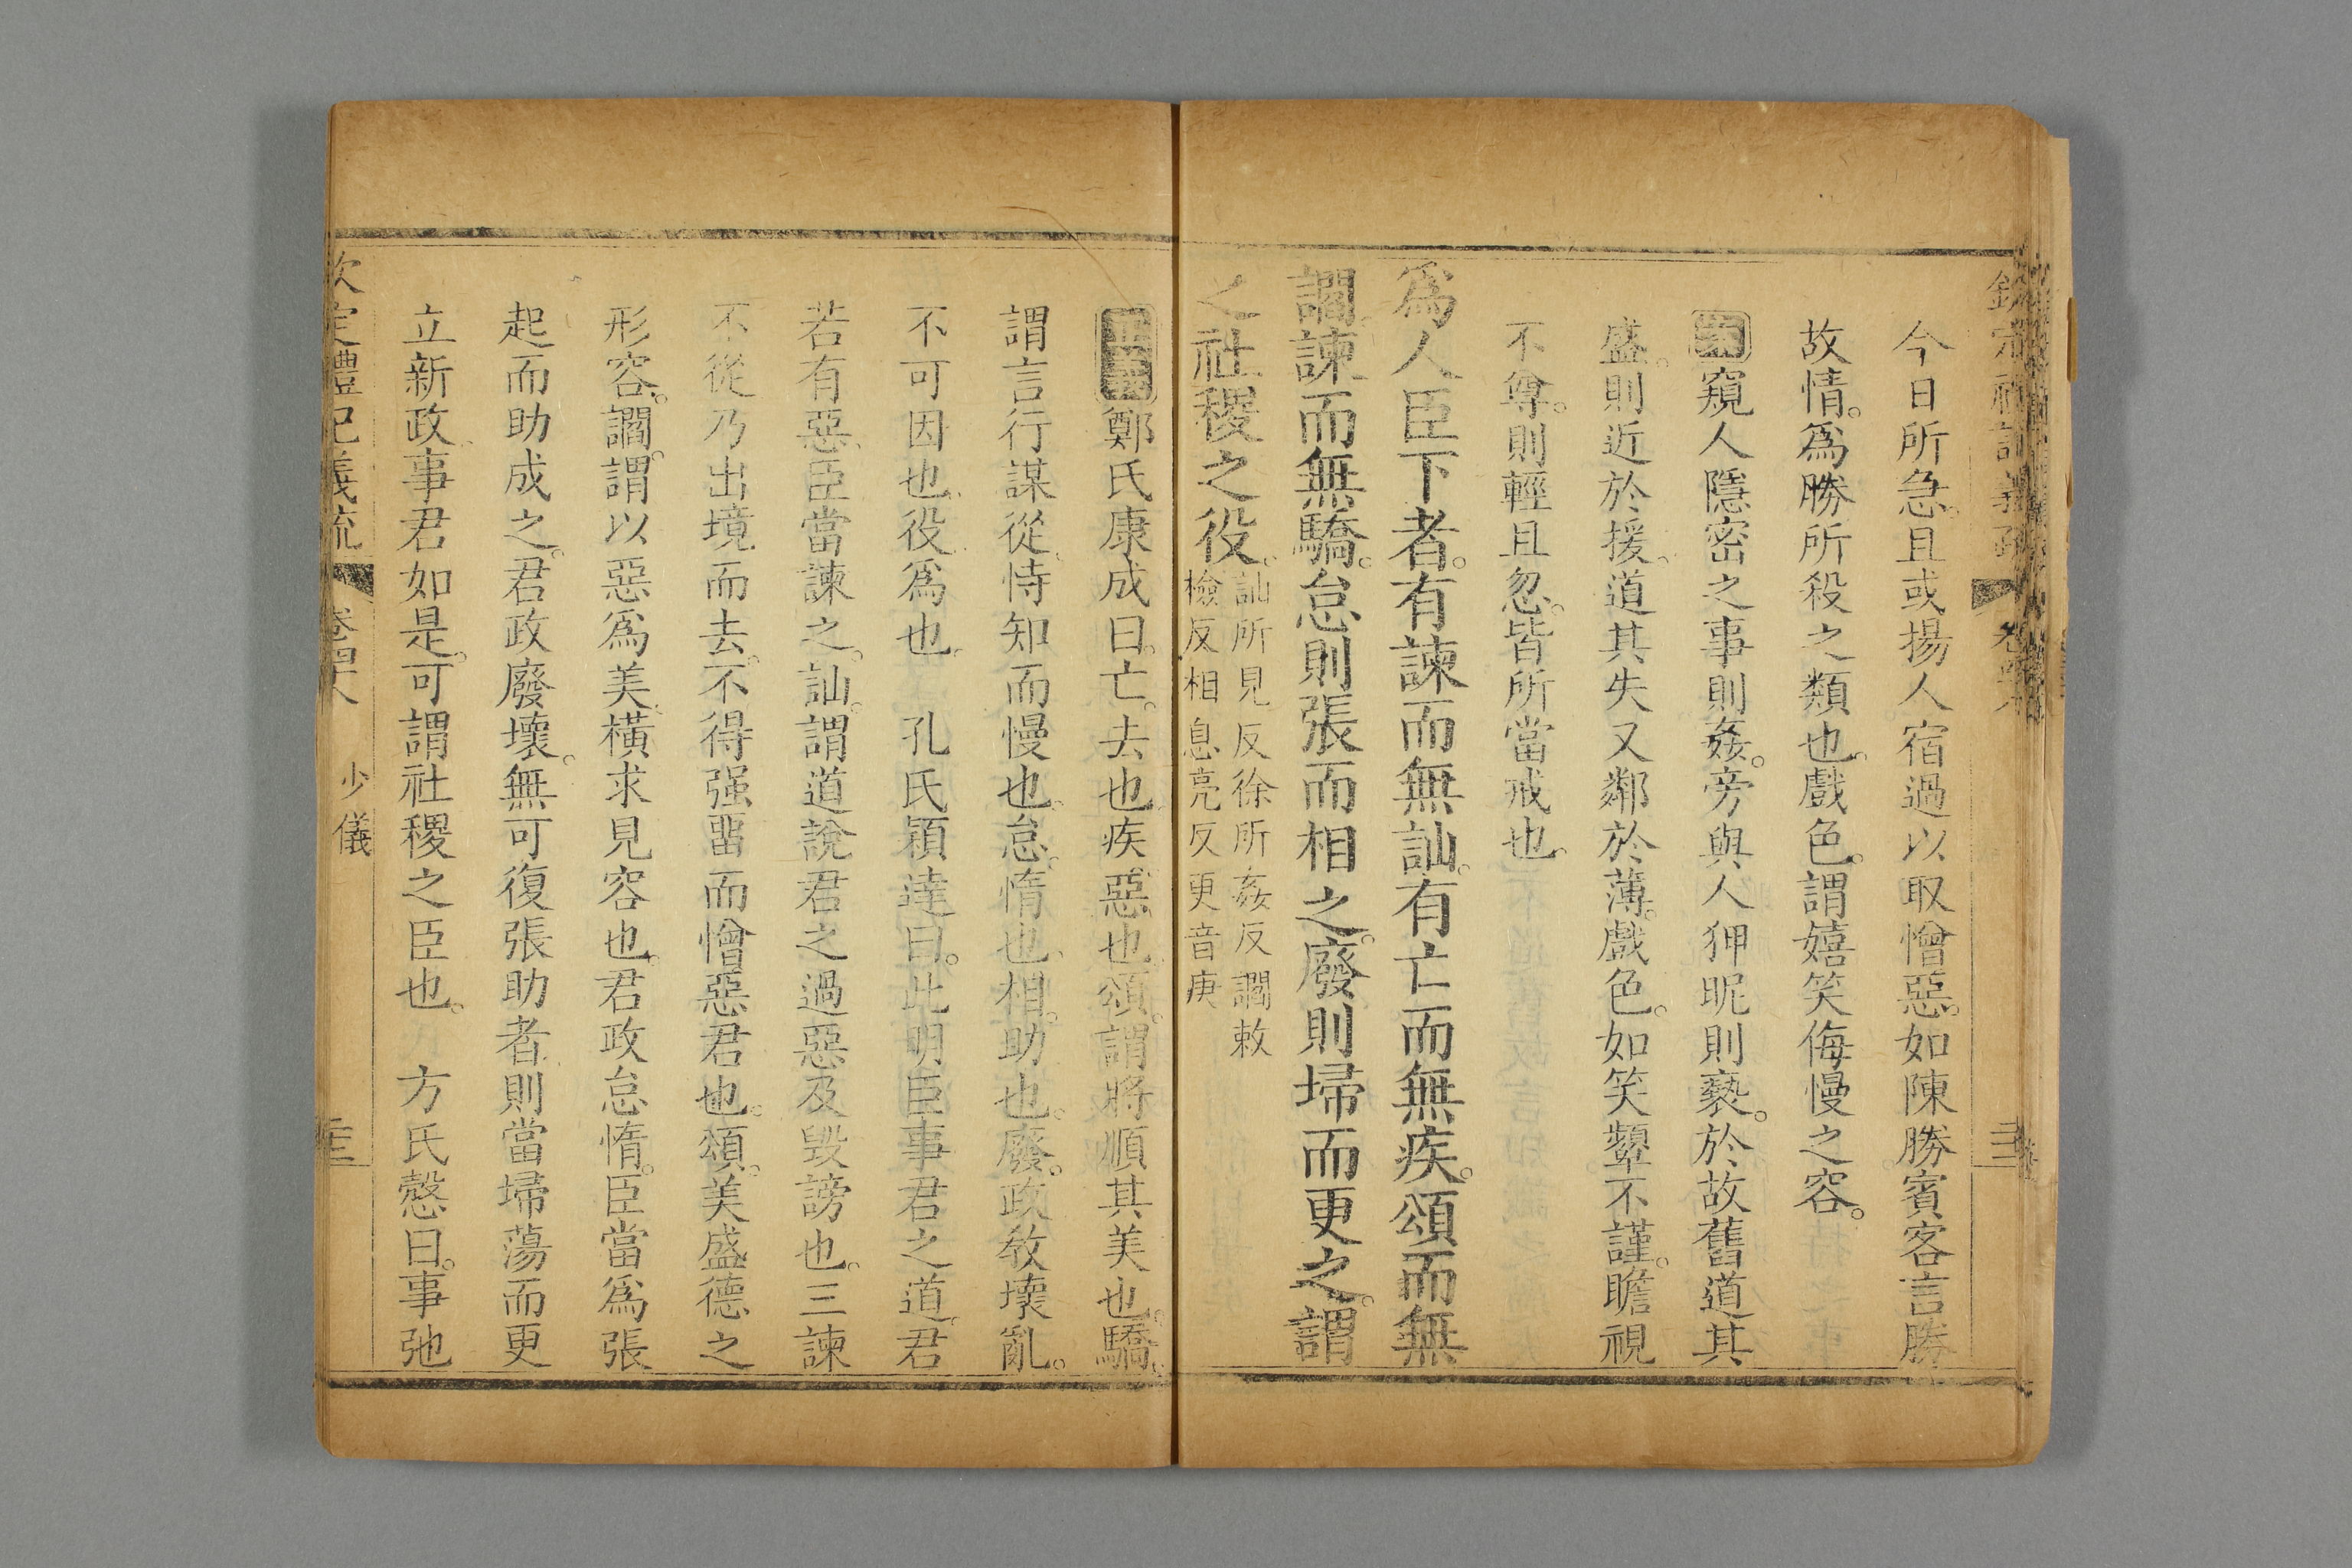 今日所急且或揚人宿過以取憎惡如陳勝賓客言勝
故情爲勝所殺之類也戲色謂嬉笑侮慢之容
案窺人隱密之事則姦旁與人狎昵則褻於故舊道其
盛則近於援道其失又鄰於薄戲色如笑顰不謹瞻視
不尊則輕且忽皆所當戒也
爲人臣下者有諫而無訕有亡而無疾頌而無
讇諫而無驕怠則張而相之廢則埽而更之謂
之社稷之役
訕所見反徐所姦反讇敕
檢反相息亮反更音庚
鄭氏康成曰亡去也疾惡也頌謂將順其美也驕
謂言行謀從恃知而慢也怠惰也相助也廢政敎壞亂
不可因也役爲也　孔氏穎達曰此明臣事君之道君
若有惡臣當諫之訕謂道說君之過惡及毀謗也三諫
不從乃出境而去不得强畱而憎惡君也頌美盛德之
形容讇謂以惡爲美橫求見容也君政怠惰臣當爲張
起而助成之君政廢壞無可復張助者則當埽蕩而更
立新政事君如是可謂社稷之臣也　方氏慤曰事弛
欽定禮記義疏　卷四十八　少儀